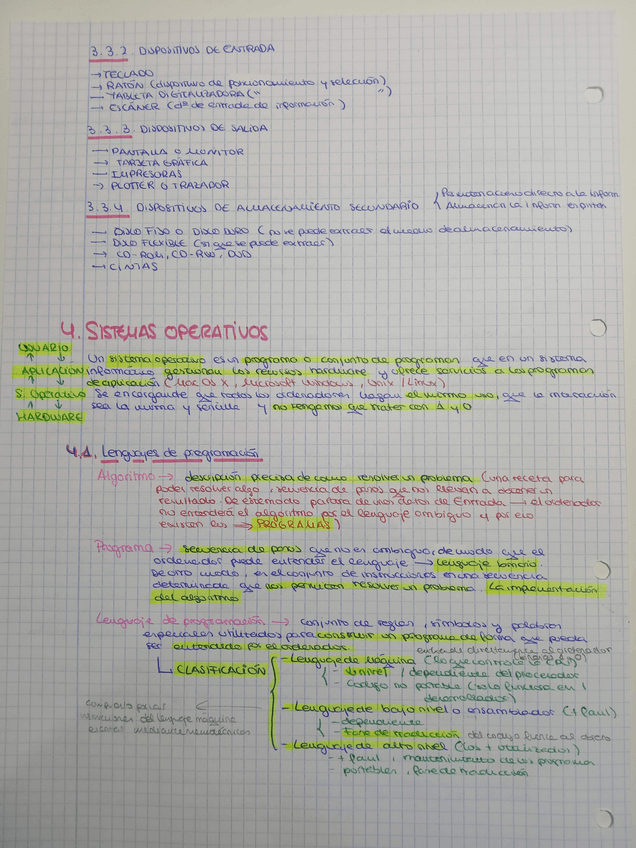 3.3.2. DISPOSITIVOS DE ENTRADA
→ TECLADO
→ RATÓN (dispositivo de posicionamiento y selección)
→ TABLETA DIGITALIZADORA (" ")
→ ESCÁNER (dº de entrada de información)
3.3.3. DISPOSITIVOS DE SALIDA
→ PANTALLA O MONITOR
→ TARJETA GRÁFICA
→ IMPRESORAS
→ PLOTTER O TRAZADOR
3.3.4. DISPOSITIVOS DE ALMACENAMIENTO SECUNDARIO
Permiten acceso directo a la inform.
Almacenan la inform en
→ DISCO FIJO O DISCO DURO (no se puede extraer el medio de almacenamiento)
→ DISCO FLEXIBLE (si que se puede extraer)
→ CD-ROM, CD-RW, DVD
→ CINTAS
4. SISTEMAS OPERATIVOS
USUARIO
↑ ↓
APLICACIÓN
↑ ↓
S. Operativo
↑ ↓
HARDWARE
Un sistema operativo es un programa o conjunto de programas que en un sistema
informático gestionan los recursos hardware y ofrece servicios a los programas
de aplicación (Mac OS X, Microsoft Windows, Unix / Linux)
Se encargan de que todos los ordenadores hagan el mismo uso, que la interacción
sea la misma y sencilla y no tengamos que tratar con 1 y 0
4.1. Lenguajes de programación
Algoritmo → descripción precisa de como resolver un problema (una receta para
poder resolver algo, secuencia de pasos que nos llevan a obtener un
resultado. De este modo partirá de unos datos de Entrada → el ordenador
no entenderá el algoritmo por el lenguaje ambiguo y por eso
existen los ⇒ PROGRAMAS)
Programa → secuencia de pasos que no es ambigua, de modo que el
ordenador puede entender el lenguaje → Lenguaje binario.
De otro modo, es el conjunto de instrucciones en una secuencia
determinada que nos permiten resolver un problema. La implementación
del algoritmo
Lenguaje de programación → conjunto de reglas, símbolos y palabras
especiales utilizadas para construir un programa de forma que pueda
ser entendido por el ordenador.
CLASIFICACIÓN
entiende directamente el ordenador
- Lenguaje de máquina (lo que controla la CPU)
- 1º nivel / dependiente del procesador
- Código no portable (solo funciona en 1
- Lenguaje de bajo nivel o ensamblador (+ fácil)
- dependiente
- Fase de traducción del código fuente al
- Lenguaje de alto nivel (los + utilizados)
- + fácil, mantenimiento de los programas
- portables, fase de traducción
del lenguaje máquina